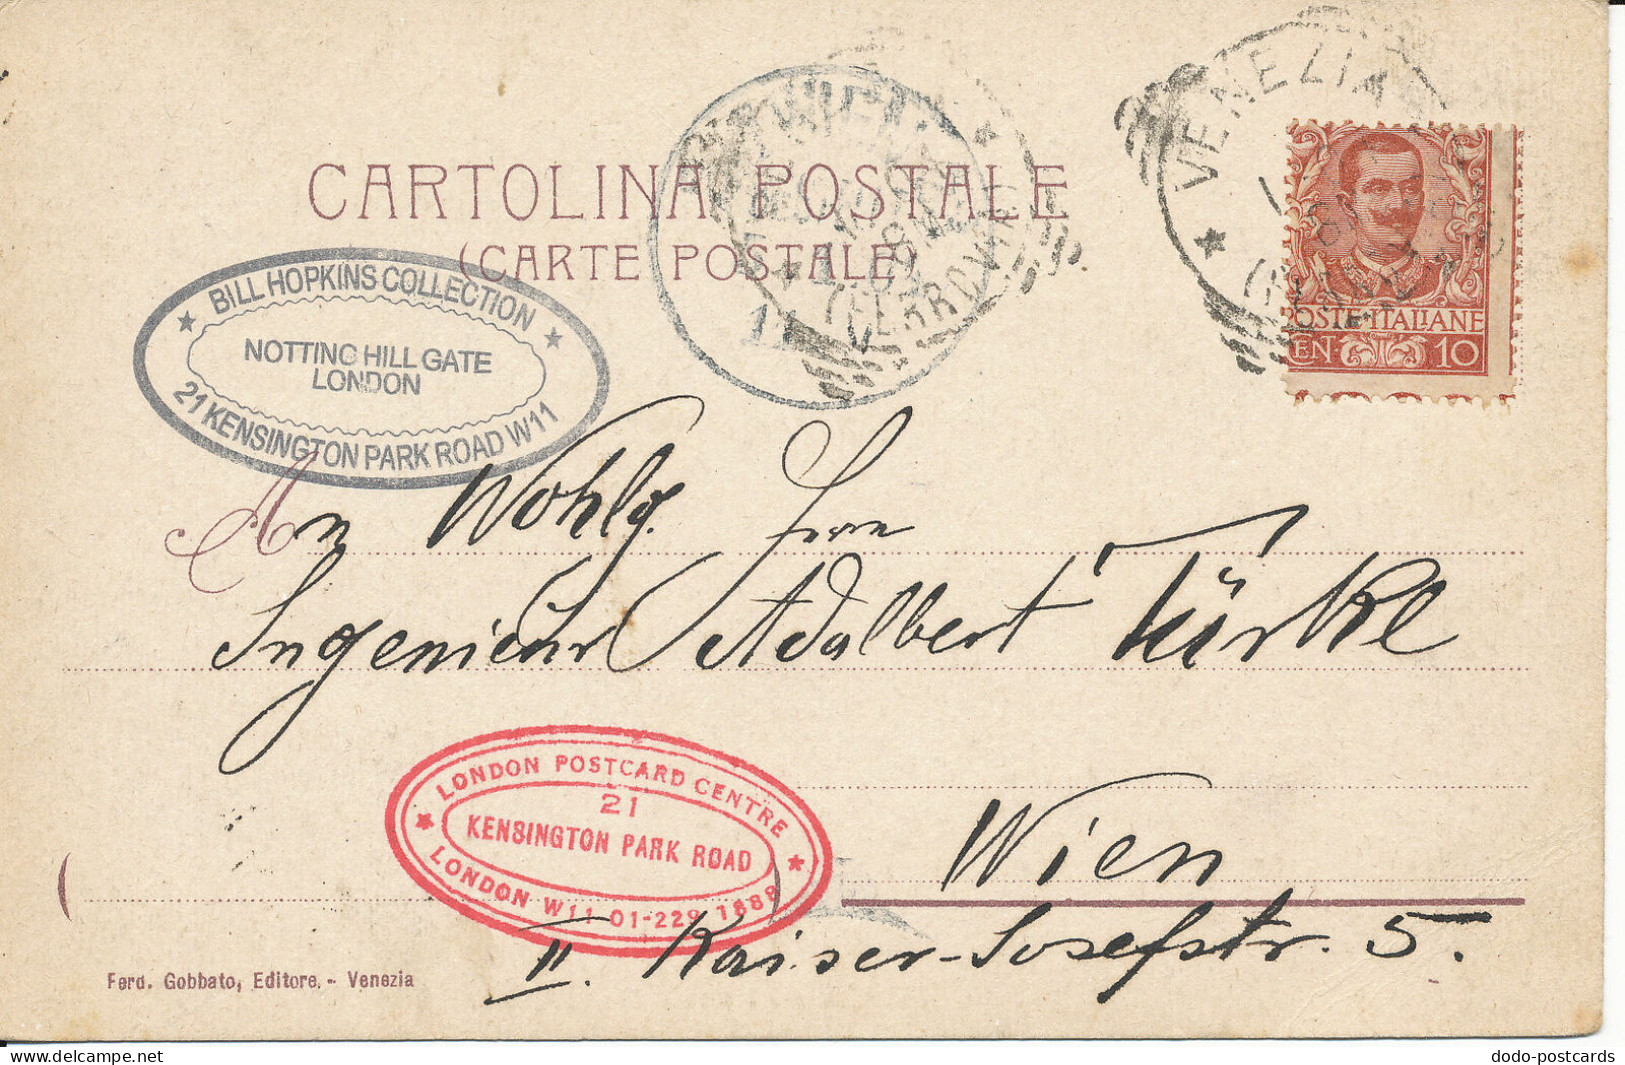 VENEZIA
(FERROVIA)
CARTOLINA POSTALE
(CARTE POSTALE)
POSTE ITALIANE
CEN 10
BILL HOPKINS COLLECTION
NOTTING HILL GATE
LONDON
21 KENSINGTON PARK ROAD W11
An Wohlg. Herrn
Ingenieur Adalbert Türke
LONDON POSTCARD CENTRE
21
KENSINGTON PARK ROAD
LONDON W11 01-229 1888
Wien
II. Kaiser-Josefstr. 5.
Ferd. Gobbato, Editore. - Venezia
dodo-postcards